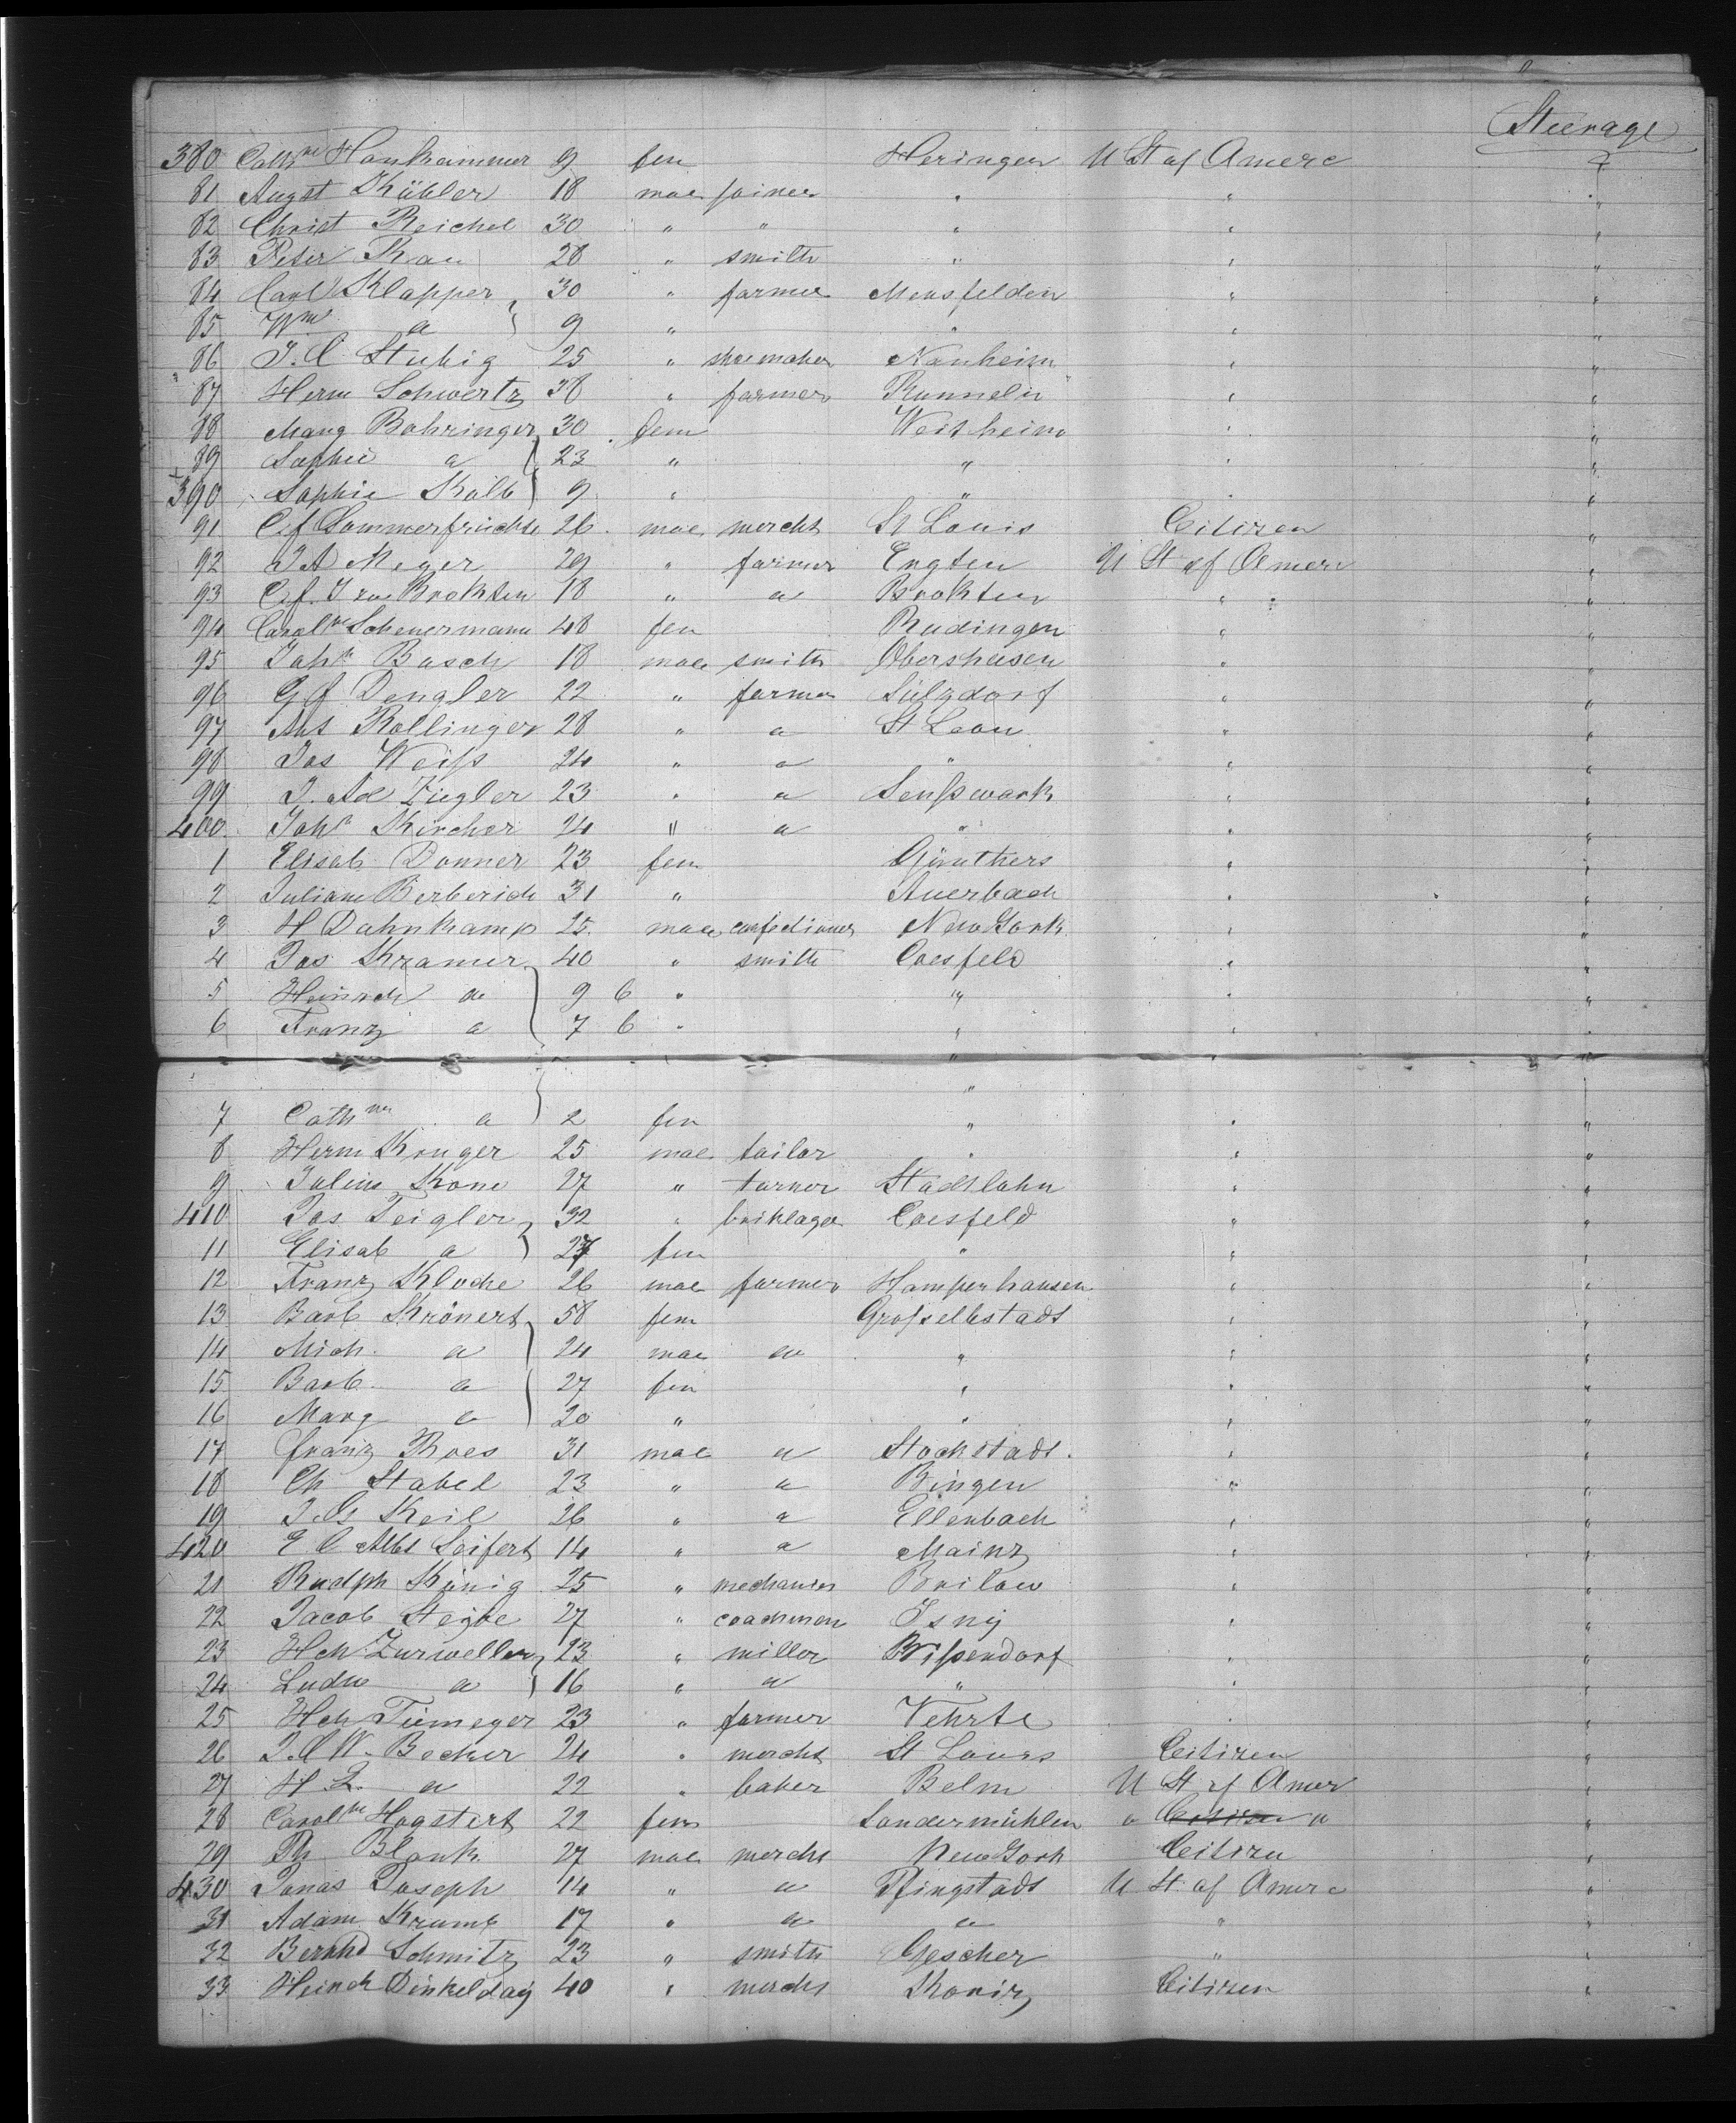 Steerage
380 Cath ne Hankammer 9 fem Heringen U St of Amerc "
81 Augst Kübler 18 mae joiner " " "
82 Christ Reichel 30 " " " " "
83 Peter Rau 28 " smith " " "
84 Carl Klapper 30 " farmer Mensfelden " "
85 Wm a 9 " " " "
86 J. C. Stubig 25 " shoemaker Nauheim " "
87 Herm Schwertz 38 " farmer " "
88 Marg Bohringer 30 fem Weilheim " "
89 Sophie a 23 " " " "
390 Sophie Kolb 9 " " " "
91 C. f. Sommerfrüchte 26 mae mercht St Louis Citizen "
92 J A Meyer 29 " farmer Engten U St of Amerc "
93 18 " a Brokten " "
94 Carol ne Scheuermann 48 fem Rudingen " "
95 Joh n Basch 18 mae smith " "
96 G f Dengler 22 " farmer Sülzdorf " "
97 Ant Rollinger 28 " a St Leon " "
98 Jos Weiſs 24 " a " " "
99 J. Ad Ziegler 23 " a " "
400 Joh n Kircher 24 " a " " "
1 Elisab Donner 23 fem Günthers " "
2 Juliane Berberich 31 " Auerbach " "
3 H Dahnkamp 25 mae confectioner New York " "
4 Jos Kramer 40 " smith Coesfeld " "
5 Heinrch a 9 6 " " " "
6 Franz a 7 6 " " " "
7 Cath ne a 2 fem " " "
8 Herm Kruger 25 mae tailor " " "
9 Julius Kone 27 " turner Stadtlohn " "
410 Jos Teigler 32 " briklayer Coesfeld " "
11 Elisab a 27 fem " " "
12 Franz Kloche 26 mae farmer Hamperhausen " "
13 Barb Krönert 58 fem Groſselbstadt " "
14 Mich a 24 mae a " " "
15 Barb a 27 fem " " "
16 Marg a 20 " " " "
17 Franz Roes 31 mae a Stockstadt " "
18 Ch Stabel 23 " a Bingen " "
19 J. G Keil 26 " a Ellenbach " "
420 E C Albt Seifert 14 " a Mainz " "
21 Rudph König 25 " mechanier Brilow " "
22 Jacob 27 " coachman Isny " "
23 Hch Zurwellen 23 " miller Biſsendorf " "
24 Ludw a 16 " a " " "
25 Hch Tiemeyer 23 " farmer Vehrte " "
26 J. C W. Becker 24 " mercht St Louis Citizen "
27 H L. a 22 " baker Belm U St of Amer "
28 Carol ne Hagstert 22 fem Sandermühlen " Citizen " "
29 Ph Blank 27 mae mercht New York Citizen "
430 Jonas Joseph 14 " a Pfingstadt U St of Amerc "
31 Adam Krumb 17 " a a " "
32 Bernhd Schmitz 23 " smith Gescher " "
33 Heinch Dinkeldaÿ 40 " mercht Citizen "